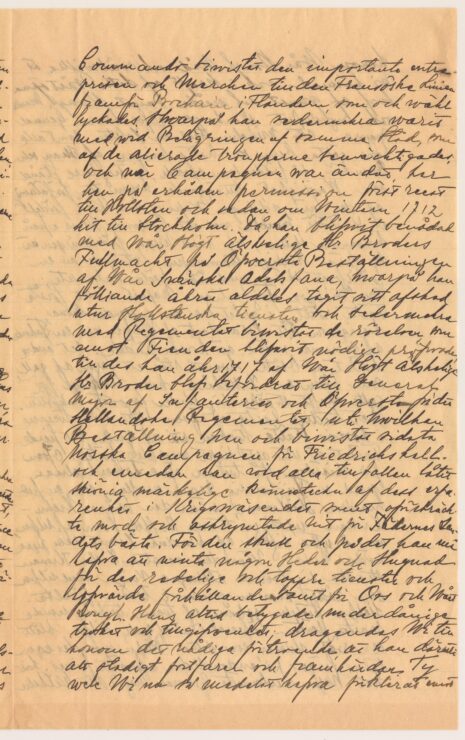 Commando biwistat den importante entre-
prisen och Marchen till den Fransöske linien
framför Bochain i Flandern som och wähl
lyckades hwarpå han sedermehra warit
med wid Belägringen af samma stad, som
af de alierade troupperne bemächtigades
och när Campagnen war ändat, har
han på erhållen permission först reest
till Hollsten och sedan om Wintern 1712
hit till Stockholm. Då han blifwit benådat
med Wår Högt älskelige Hr Broders
Fullmacht på Öfwerste Beställningen
af Wår Swänska Adels fana, hwarpå han
föliande åhret aldeles tagit sitt afsked
utur Hollstenska tiensten och sedermehra
med Regementet biwistat de rörelser som
emot Fienden blifwit nödige
till des han åhr 1717 af Wår Högt älskelige
Hr Broder blef beförderat till General
major af Infanteriet och Öfwerste för det
Hellandske Regementet, uti hwilken
Beställning han och biwistat sidsta
Norska Campagnen för Friedrichshall.
och emedan han wid alla tillfällen låtit
skönja märkelige kännetecken af dess erfa-
renhet i Krigswäsendet samt oförskräck-
te mod och nit för Fädernes lan-
dets bästa. För den skull och på det han må
hafwa att niuta någon Heder och Hugnad
för des redelige och tappre tienster och
förhållande samt för Oss och Wårt
Kongl. Huus altid betygade underdånige
trohet och tillgifwenhet dragandes Wi till
honom det nådiga förtroende at han däruti
alt städigt fortfarer och framhärdar. Ty
wele Wi nu så medelst hafwa förklarat samt